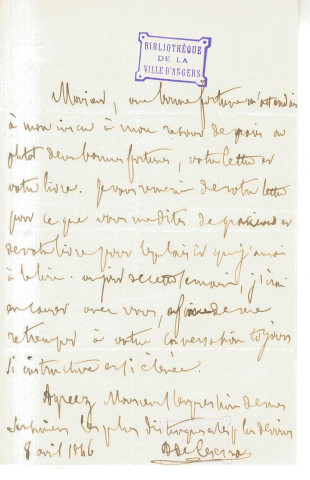 BIBLIOTHÈQUE
DE LA
VILLE D'ANGERS
Monsieur, une bonne fortune m'attendait
à mon insu à mon retour de paris ou
plutot deux bonnes fortunes, votre lettre et
votre livre. Je vous remercie de votre lettre
pour ce que vous me dites de gracieux et
de votre livre pour le plaisir que j'aurai
à le lire. un jour de cette semaine, j'irai
en causer avec vous, afin de me
retremper à votre conversation toujours
si instructive et si élevée.
Agréez Monsieur l'expression de mes
sentimens les plus distingués et les plus
8 avril 1846